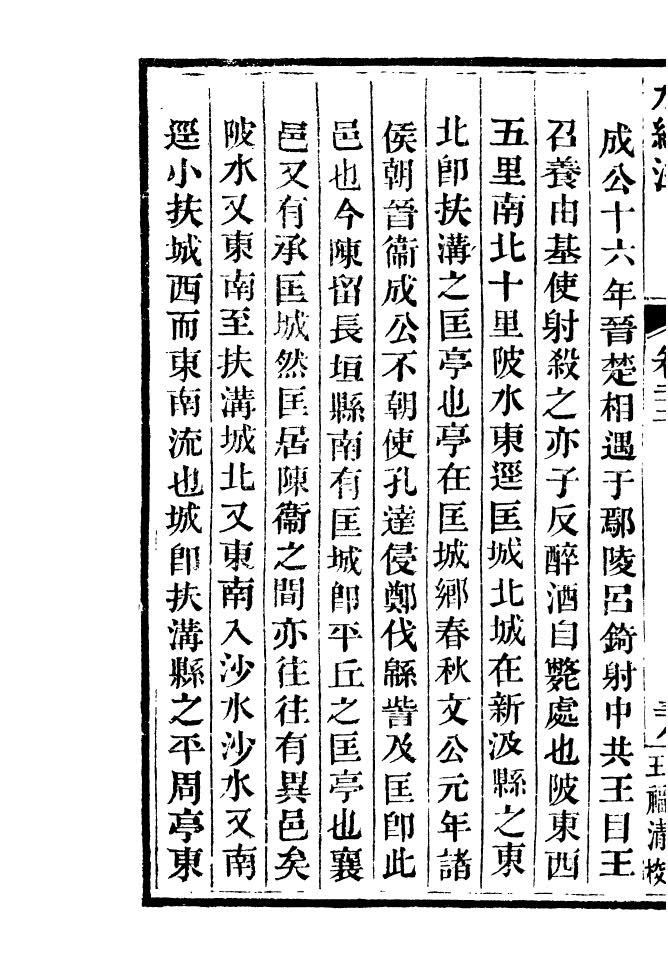 水經注 卷二十二 三八 王福清校
成公十六年晉楚相遇于鄢陵呂錡射中共王目王
召養由基使射殺之亦子反醉酒自斃處也陂東西
五里南北十里陂水東逕匡城北城在新汲縣之東
北卽扶溝之匡亭也亭在匡城鄉春秋文公元年諸
侯朝晉衞成公不朝使孔達侵鄭伐緜訾及匡卽此
邑也今陳留長垣縣南有匡城卽平丘之匡亭也襄
邑又有承匡城然匡居陳衞之間亦往往有異邑矣
陂水又東南至扶溝城北又東南入沙水沙水又南
逕小扶城西而東南流也城卽扶溝縣之平周亭東